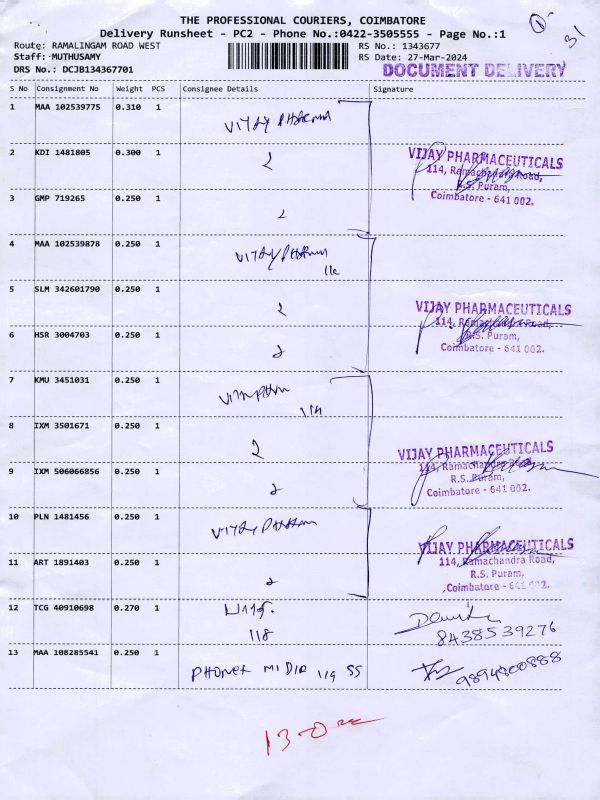 THE PROFESSIONAL COURIERS, COIMBATORE
Delivery Runsheet - PC2 - Phone No.:0422-3505555 - Page No.:1
Route: RAMALINGAM ROAD WEST RS No.: 1343677
Staff: MUTHUSAMY RS Date: 27-Mar-2024
DRS No.: DCJB134367701 DOCUMENT DELIVERY
S No Consignment No Weight PCS Consignee Details Signature
1 MAA 102539775 0.310 1
VIJAY PHARMA
2 KDI 1481805 0.300 1
VIJAY PHARMACEUTICALS
114, Ramachandra Road,
R.S. Puram,
Coimbatore - 641 002.
3 GMP 719265 0.250 1
4 MAA 102539878 0.250 1
VIJAY PHARMA
5 SLM 342601790 0.250 1
VIJAY PHARMACEUTICALS
114, Ramachandra Road,
R.S. Puram,
Coimbatore - 641 002.
6 HSR 3004703 0.250 1
7 KMU 3451031 0.250 1
8 IXM 3501671 0.250 1
VIJAY PHARMACEUTICALS
114, Ramachandra Road,
R.S. Puram,
Coimbatore - 641 002.
9 IXM 506066856 0.250 1
10 PLN 1481456 0.250 1
VIJAY PHARMA
VIJAY PHARMACEUTICALS
114, Ramachandra Road,
R.S. Puram,
Coimbatore - 641 002.
11 ART 1891403 0.250 1
12 TCG 40910698 0.270 1
118
8438539276
13 MAA 108285541 0.250 1
119 SS
9894800888